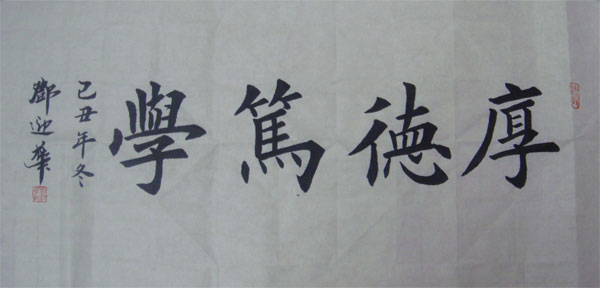 厚德篤學
己丑年冬
鄧迎華